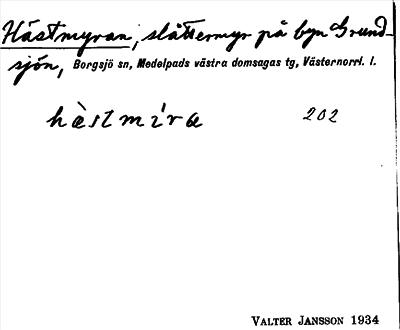 Hästmyran, slåttermyr på byn Grund-
sjön, Borgsjö sn, Medelpads västra domsagas tg, Västernorrl. l.
hàstmíra 202
VALTER JANSSON 1934